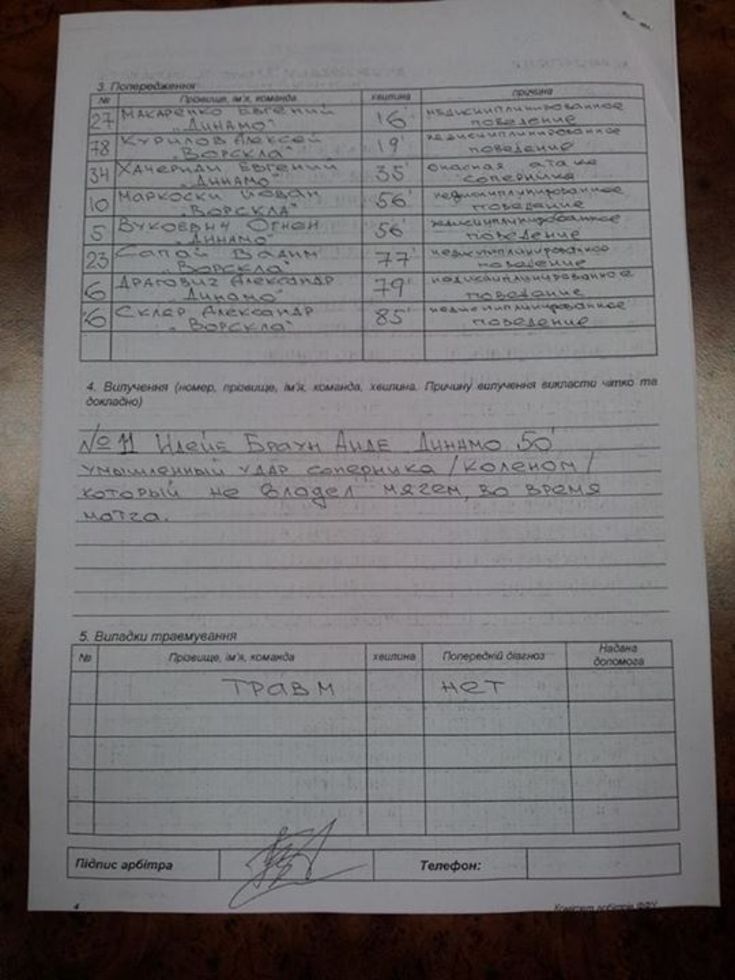 3. Попередження
№ Прізвище, ім'я, команда хвилина причина
27 Макаренко Евгений „Динамо" 16' недисциплинированное поведение
78 Курилов Алексей „Ворскла" 19' недисциплинированное поведение
34 Хачериди Евгений „Динамо" 35' опасная атака соперника
10 Маркоски Йован „Ворскла" 56' недисциплинированное поведение
5 Вукоевич Огнен „Динамо" 56' недисциплинированное поведение
23 Сапай Вадим „Ворскла" 77' недисциплинированное поведение
6 Драгович Александр „Динамо" 79' недисциплинированное поведение
6 Скляр Александр „Ворскла" 85' недисциплинированное поведение
4. Вилучення (номер, прізвище, ім'я, команда, хвилина. Причину вилучення викласти чітко та
докладно)
№ 11 Идейе Браун Аиде Динамо 50'
умышленный удар соперника /коленом/
который не владел мячем, во время
матча.
5. Випадки травмування
№ Прізвище, ім'я, команда хвилина Попередній діагноз Надана допомога
травм нет
Підпис арбітра Телефон:
4 Комітет арбітрів ФФУ